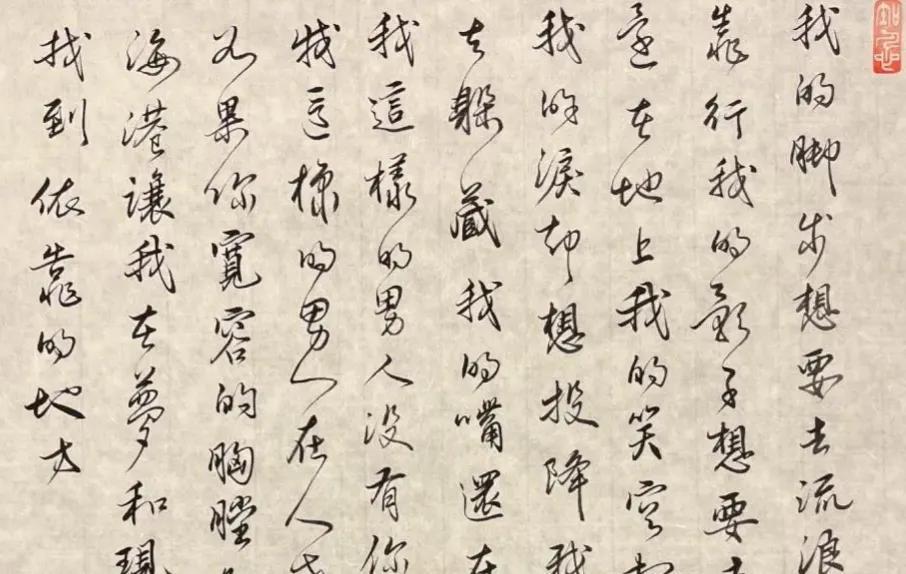 我的脚步想要去流浪
靠行我的影子想要
還在地上我的笑容
我的淚却想投降我
去躲藏我的嘴還在
我這樣的男人没有你
我這樣的男人在人
如果你寬容的胸膛
海港讓我在夢和現
找到依靠的地方